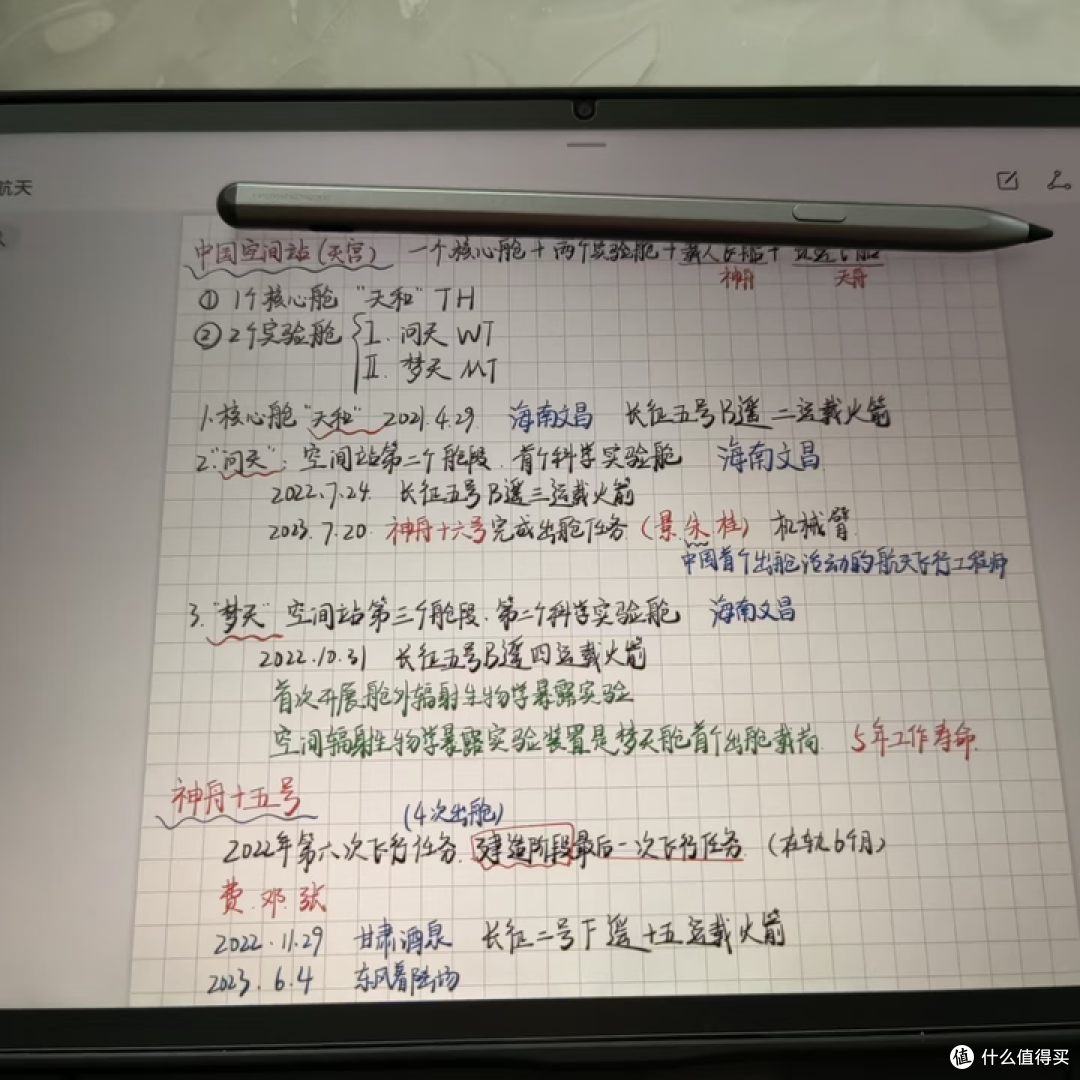 航天
中国空间站(天宫) 一个核心舱+两个实验舱+载人飞船+
神舟 天舟
① 1个核心舱 "天和" TH
② 2个实验舱 { I. 问天 WT
II. 梦天 MT
1. 核心舱"天和" 2021.4.29. 海南文昌 长征五号B遥二运载火箭
2."问天": 空间站第二个舱段. 首个科学实验舱 海南文昌
2022.7.24. 长征五号B遥三运载火箭
2023.7.20. 神舟十六号完成出舱任务 (景.朱.桂) 机械臂.
中国首个出舱活动的航天飞行工程师
3. "梦天" 空间站第三个舱段. 第二个科学实验舱 海南文昌
2022.10.31 长征五号B遥四运载火箭
首次开展舱外辐射生物学暴露实验
空间辐射生物学暴露实验装置是梦天舱首个出舱载荷 5年工作寿命.
神舟十五号
(4次出舱)
2022年第六次飞行任务. 建造阶段最后一次飞行任务. (在轨6个月)
费.邓.张
2022.11.29 甘肃酒泉 长征二号F遥十五运载火箭
2023.6.4 东风着陆场
值 什么值得买